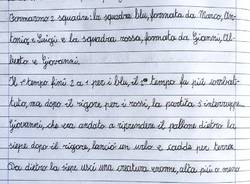 Formammo 2 squadre: la squadra blu, formata da Marco, An-
tonio e Luigi e la squadra rossa, formata da Gianni, Al-
berto e Giovanni.
Il 1° tempo finì 2 a 1 per i blu, il 2° tempo fu più combat-
tuto, ma dopo il rigore, per i rossi, la partita s'interruppe.
Giovanni, che era andato a riprendere il pallone dietro la
siepe dopo il rigore, lanciò un urlo e cadde per terra.
Da dietro la siepe uscì una creatura enorme, alta più o meno